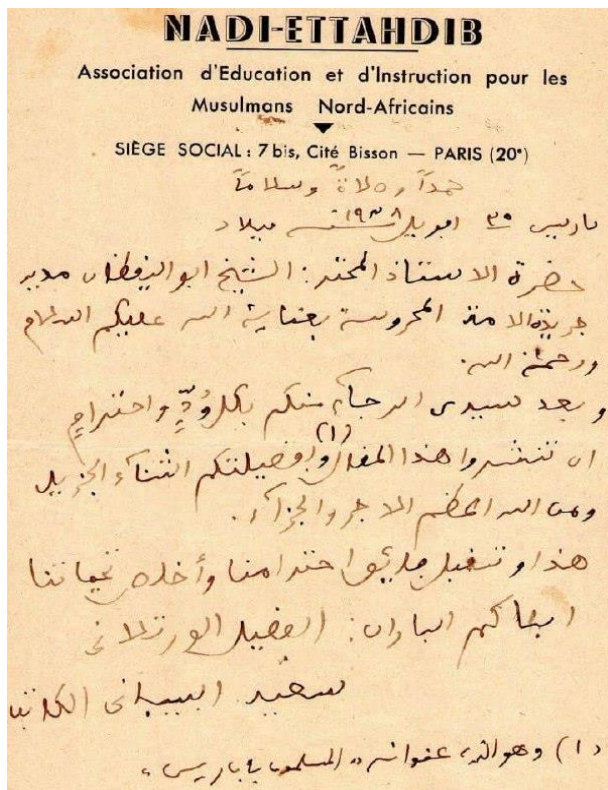 NADI-ETTAHDIB
Association d'Education et d'Instruction pour les
Musulmans Nord-Africains
SIÈGE SOCIAL : 7 bis, Cité Bisson — PARIS (20e)
حمداً وصلاةً وسلاماً
باريس ٣٠ ابريل سنة ١٩٣٨ ميلاد
حضرة الاستاذ المحترم: الشيخ ابو اليقظان مدير
جريدة الامة المحروسة بعناية الله عليكم السلام
ورحمة الله.
وبعد سيدى الرجآء منكم بكل وُدٍّ واحترامٍ
ان تنشروا هذا المقال (١) ولفضيلتكم الثنآء الجزيل
ومن الله اعظم الاجر والجزآء.
هذا وتتقبل فائق احترامنا وأخلص تحياتنا
ابناكم الباران: الفضيل الورتلانى
سعيد البيبانى الكاتب
(١) وهو الذى عنوانه "المسلمون فى باريس"